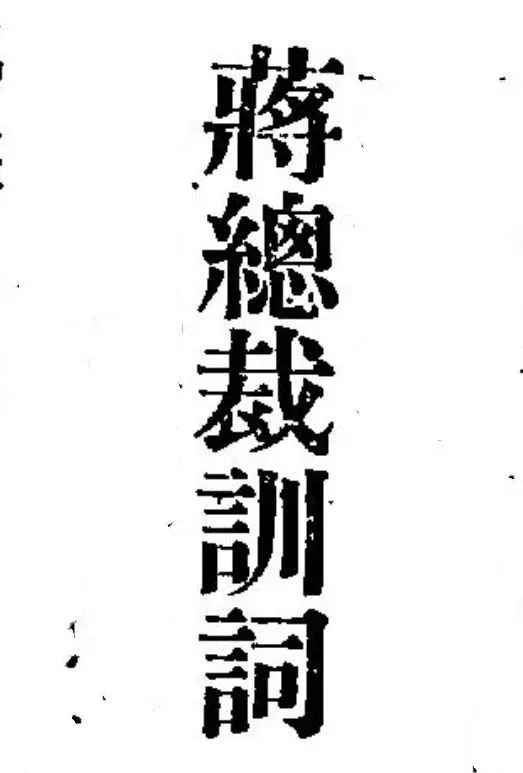 蔣總裁訓詞